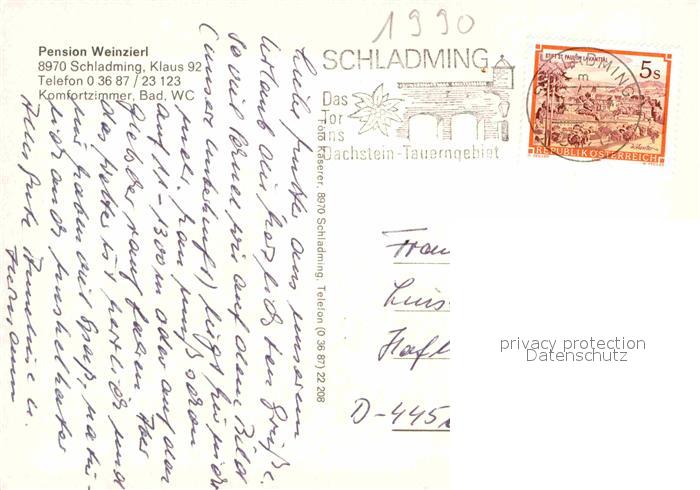 1990
Pension Weinzierl
8970 Schladming, Klaus 92
Telefon 0 36 87 / 23 123
Komfortzimmer, Bad, WC
SCHLADMING
Das
Tor
ins
Dachstein-Tauerngebiet
STIFT ST. PAUL IM LAVANTTAL
5 s
REPUBLIK ÖSTERREICH
SCHLADMING
Foto Käserer, 8970 Schladming, Telefon (0 36 87) 22 208
Liebe aus unserem
Urlaub die herzlichsten Grüße.
So viel wir auf dem Bild
(unser Unterkunft) liegt hier nicht
man muß schon
auf 11-1300 m oder auf der
rauf fahren
Das Wetter ist herrlich und
wir haben viel Spaß, natü-
lich auch
Alles Gute u.
Hermann
Frau
Luis
Hafl
D-445
privacy protection
Datenschutz